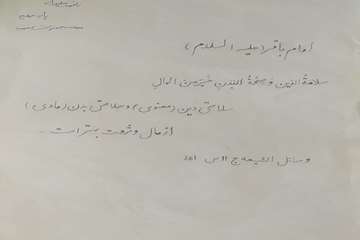 امام باقر (علیه السلام)
سلامة الدین و صحة البدن خیر من المال
سلامتی دین (معنوی) و سلامتی بدن (مادی)
از مال و ثروت بهتر است.
وسائل الشیعه ج ۱۱ ص